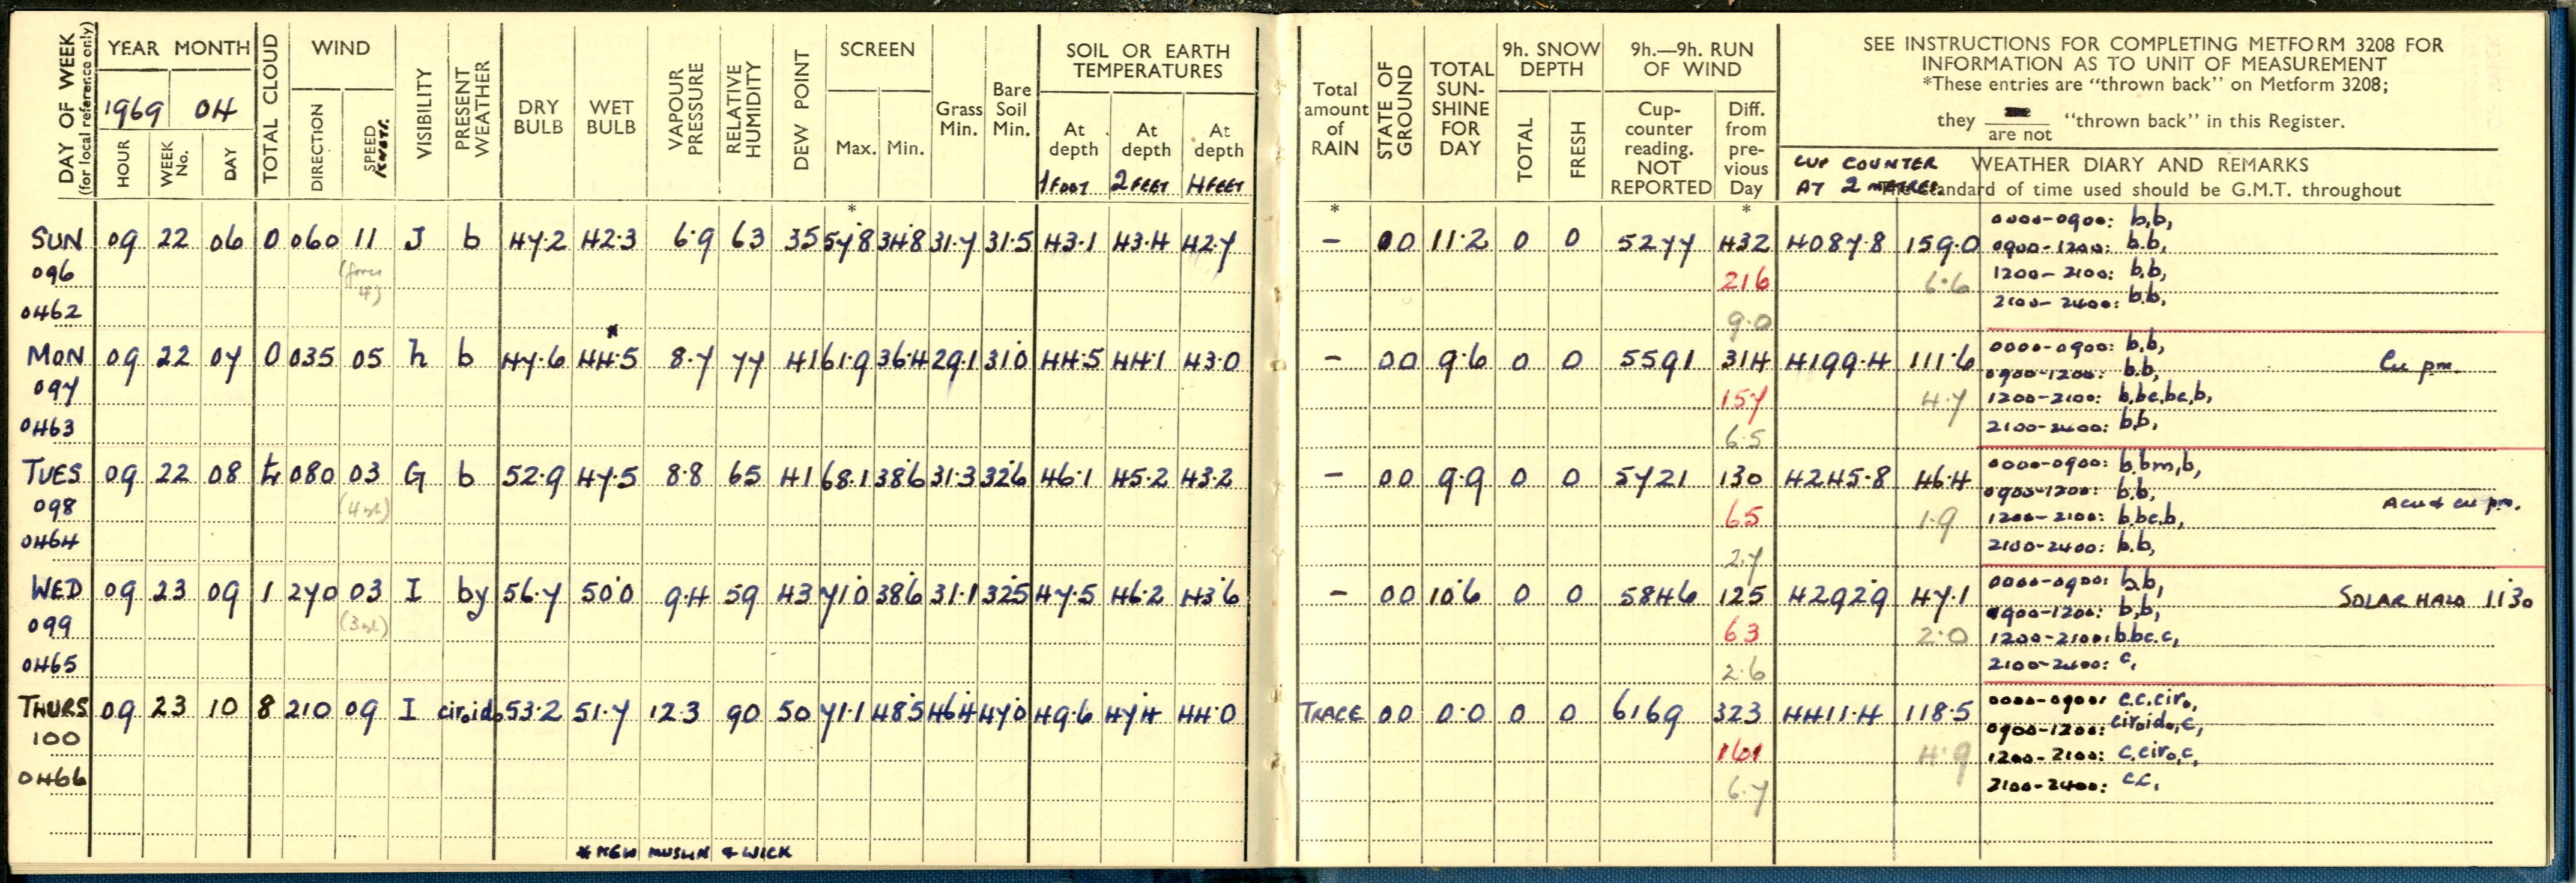 DAY OF WEEK (for local reference only) YEAR MONTH TOTAL CLOUD WIND VISIBILITY PRESENT WEATHER DRY BULB WET BULB VAPOUR PRESSURE RELATIVE HUMIDITY DEW POINT SCREEN Grass Min. Bare Soil Min. SOIL OR EARTH TEMPERATURES
1969 04
HOUR WEEK No. DAY DIRECTION SPEED KNOTS. Max. Min. At depth At depth At depth
1 FOOT 2 FEET 4 FEET
*
SUN 09 22 06 0 060 11 J b 47.2 42.3 6.9 63 35 57.8 34.8 31.7 31.5 43.1 43.4 42.7
096 (force 4)
0462
*
MON 09 22 07 0 035 05 h b 47.6 44.5 8.7 77 41 61.9 36.4 29.1 31.0 44.5 44.1 43.0
097
0463
TUES 09 22 08 tr 080 03 G b 52.9 47.5 8.8 65 41 68.1 38.6 31.3 32.6 46.1 45.2 43.2
098
0464
WED 09 23 09 1 270 03 I by 56.7 50.0 9.4 59 43 71.0 38.6 31.1 32.5 47.5 46.2 43.6
099
0465
THURS 09 23 10 8 210 09 I ciroido 53.2 51.7 12.3 90 50 71.1 48.5 46.4 47.0 49.6 47.4 44.0
100
0466
* NEW MUSLIN & WICK
Total amount of RAIN STATE OF GROUND TOTAL SUN-SHINE FOR DAY 9h. SNOW DEPTH 9h.—9h. RUN OF WIND
TOTAL FRESH Cup-counter reading. NOT REPORTED Diff. from pre-vious Day
SEE INSTRUCTIONS FOR COMPLETING METFORM 3208 FOR
INFORMATION AS TO UNIT OF MEASUREMENT
*These entries are "thrown back" on Metform 3208;
they are not "thrown back" in this Register.
CUP COUNTER AT 2 METRES
WEATHER DIARY AND REMARKS
The standard of time used should be G.M.T. throughout
* *
- 00 11.2 0 0 5277 432 4087.8 159.0 0000-0900: b,b,
0900-1200: b.b,
216 6.6 1200-2100: b,b,
2100-2400: b.b,
9.0
- 00 9.6 0 0 5591 314 4199.4 111.6 0000-0900: b,b, Cu pm.
0900-1200: b.b,
157 4.7 1200-2100: b,bc,bc,b,
6.5 2100-2400: b.b,
- 00 9.9 0 0 5721 130 4245.8 46.4 0000-0900: b.bm,b,
0900-1200: b.b, Acu & cu pm.
65 1.9 1200-2100: b.bc.b,
2.7 2100-2400: b.b,
- 00 10.6 0 0 5846 125 4292.9 47.1 0000-0900: b,b, SOLAR HALO 1130
0900-1200: b,b,
63 2.0 1200-2100: b.bc.c,
2.6 2100-2400: c,
TRACE 00 0.0 0 0 6169 323 4411.4 118.5 0000-0900: c.c.ciro,
0900-1200: ciroido,c,
161 4.9 1200-2100: c,ciro,c,
6.7 2100-2400: c.c,